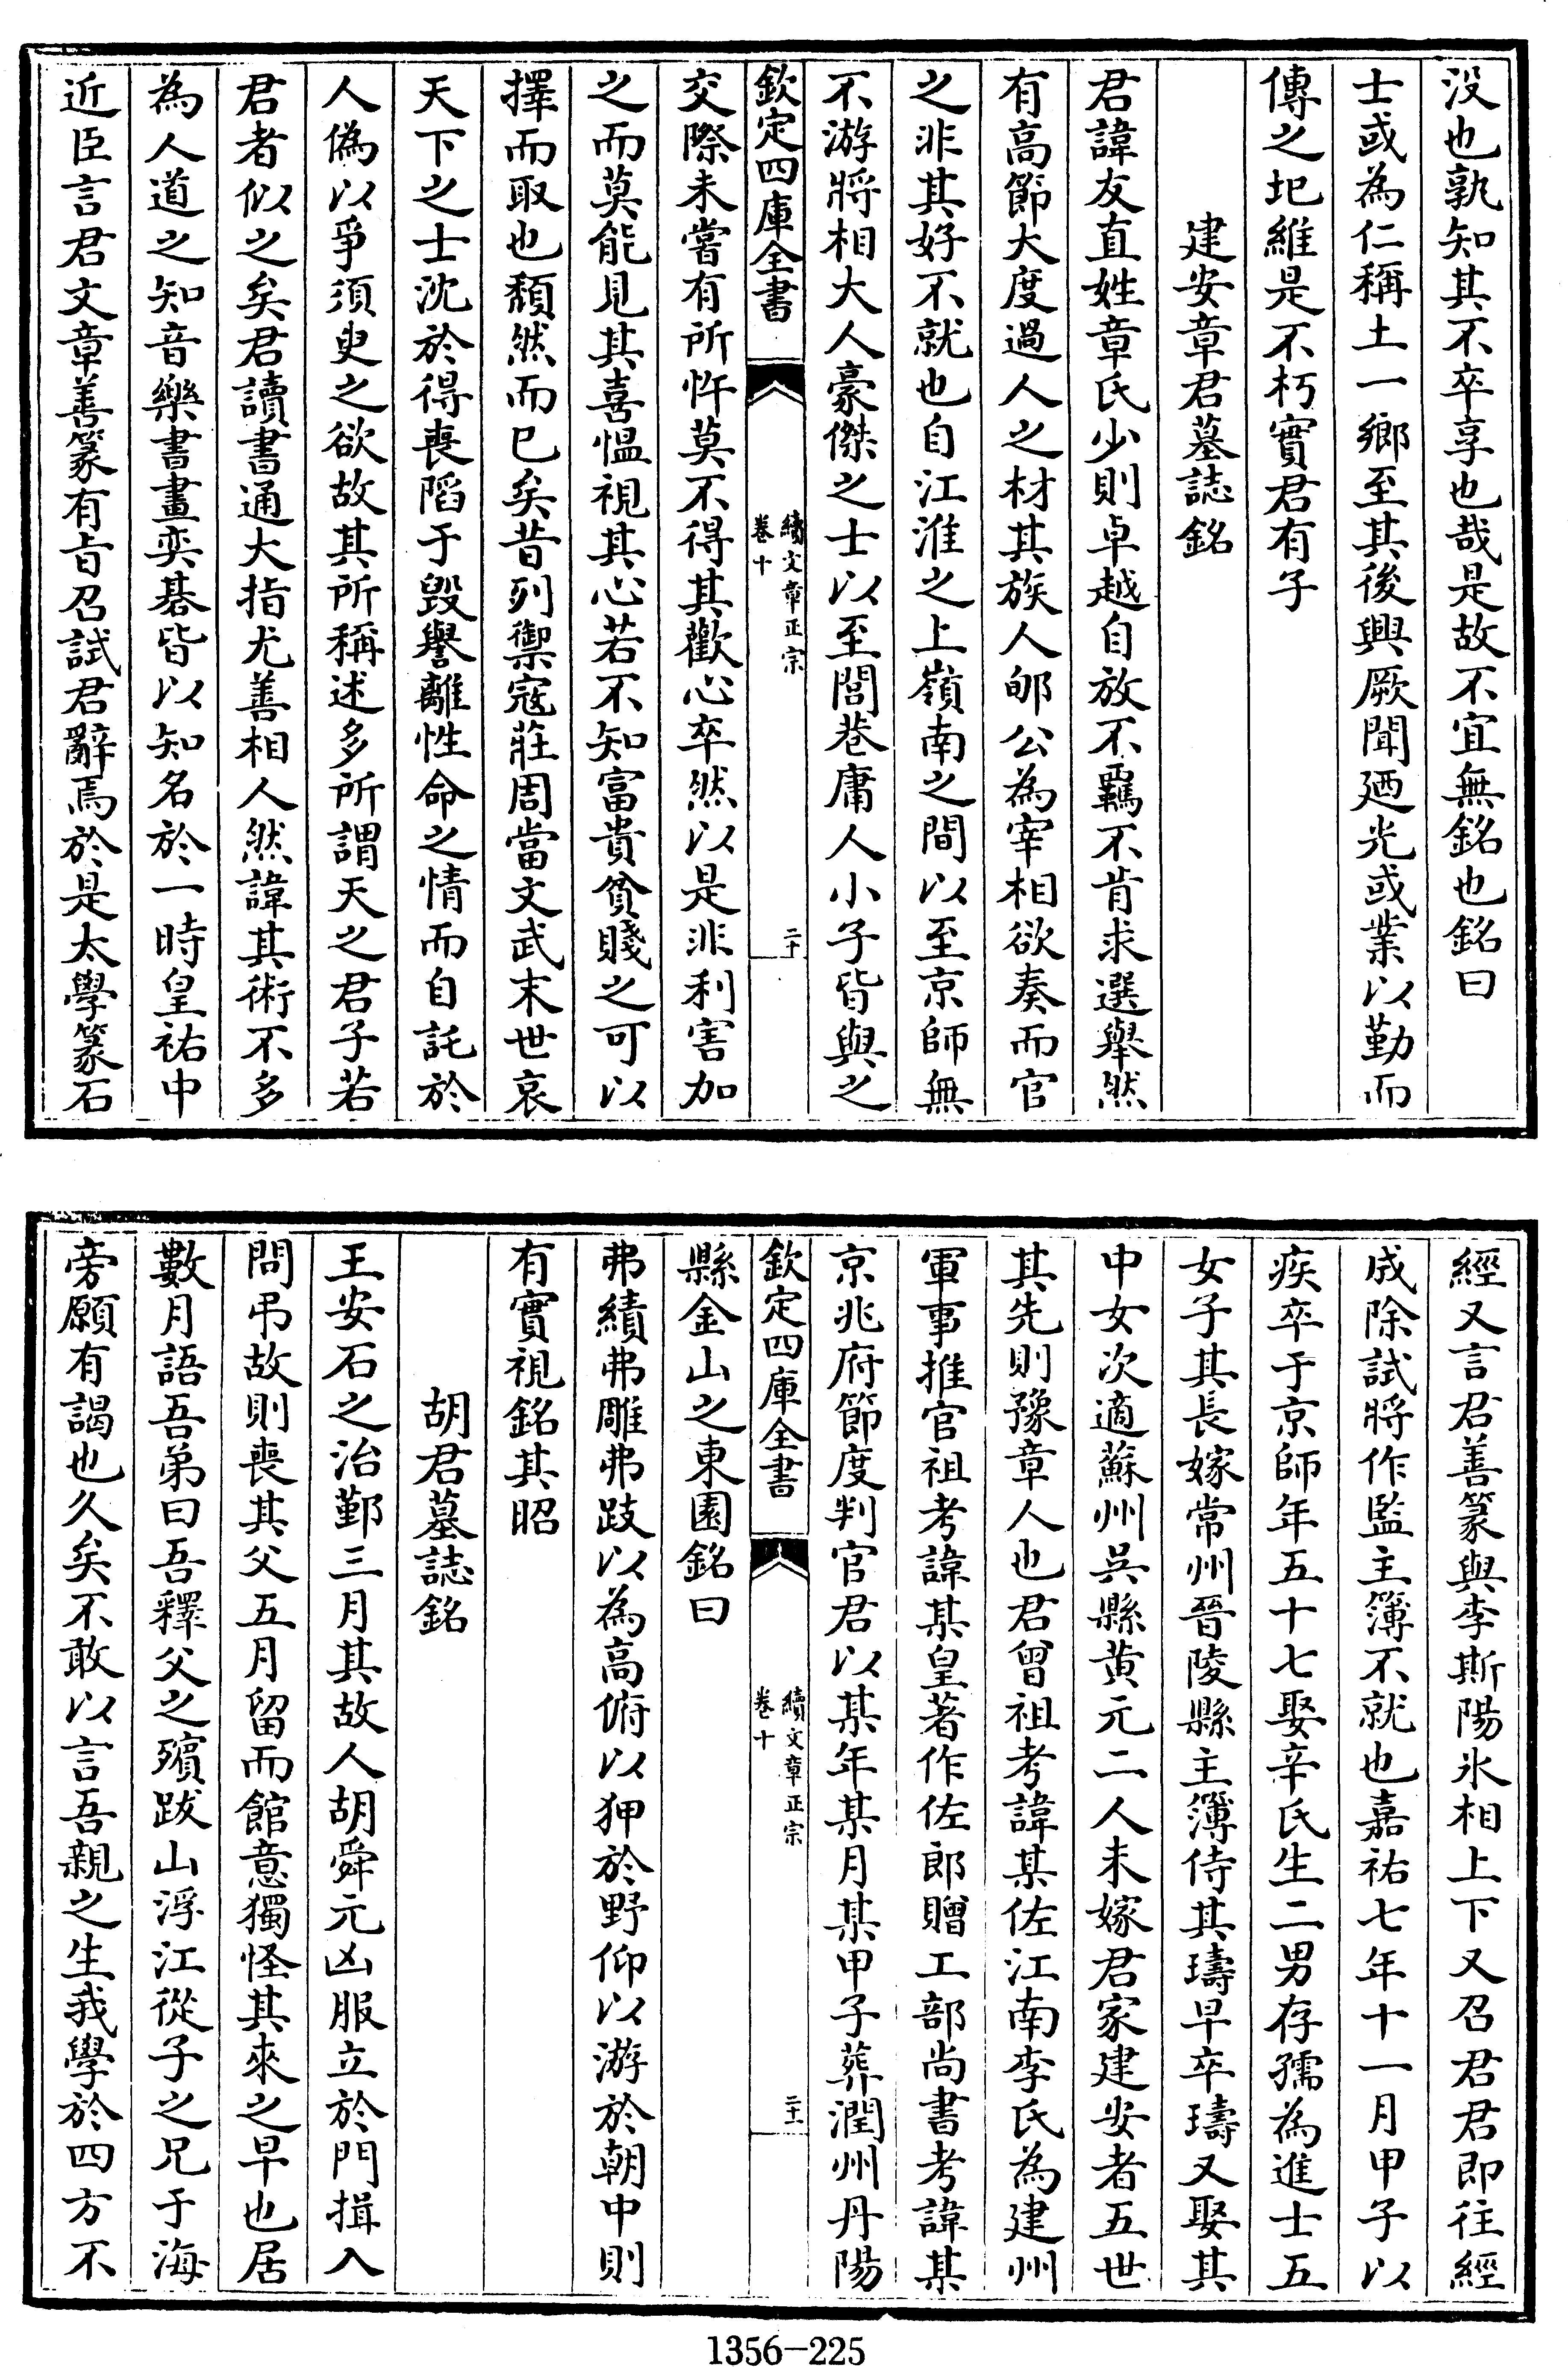 没也孰知其不卒享也哉是故不宜無銘也銘曰
士或為仁稱土一鄉至其後興厥聞廼光或業以勤而
傳之圯維是不朽實君有子
建安章君墓誌銘
君諱友直姓章氏少則卓越自放不羈不肯求選舉然
有高節大度過人之材其族人郇公為宰相欲奏而官
之非其好不就也自江淮之上嶺南之間以至京師無
不游將相大人豪傑之士以至閭巷庸人小子皆與之
欽定四庫全書
續文章正宗
卷十
二十
交際未嘗有所忤莫不得其歡心卒然以是非利害加
之而莫能見其喜慍視其心若不知富貴貧賤之可以
擇而取也頹然而已矣昔列禦寇莊周當文武末世哀
天下之士沈於得喪陷于毀譽離性命之情而自託於
人偽以爭須臾之欲故其所稱述多所謂天之君子若
君者似之矣君讀書通大指尤善相人然諱其術不多
為人道之知音樂書畫奕棊皆以知名於一時皇祐中
近臣言君文章善篆有旨召試君辭焉於是太學篆石
經又言君善篆與李斯陽氷相上下又召君君即往經
成除試將作監主簿不就也嘉祐七年十一月甲子以
疾卒于京師年五十七娶辛氏生二男存孺為進士五
女子其長嫁常州晉陵縣主簿侍其璹早卒璹又娶其
中女次適蘇州吳縣黄元二人未嫁君家建安者五世
其先則豫章人也君曾祖考諱某佐江南李氏為建州
軍事推官祖考諱某皇著作佐郎贈工部尚書考諱某
京兆府節度判官君以某年某月某甲子葬潤州丹陽
欽定四庫全書
續文章正宗
卷十
二十一
縣金山之東園銘曰
弗績弗雕弗跂以為高俯以狎於野仰以游於朝中則
有實視銘其昭
胡君墓誌銘
王安石之治鄞三月其故人胡舜元凶服立於門揖入
問弔故則喪其父五月留而館意獨怪其來之早也居
數月語吾弟曰吾釋父之殯跋山浮江從子之兄于海
旁願有謁也久矣不敢以言吾親之生我學於四方不
1356-225